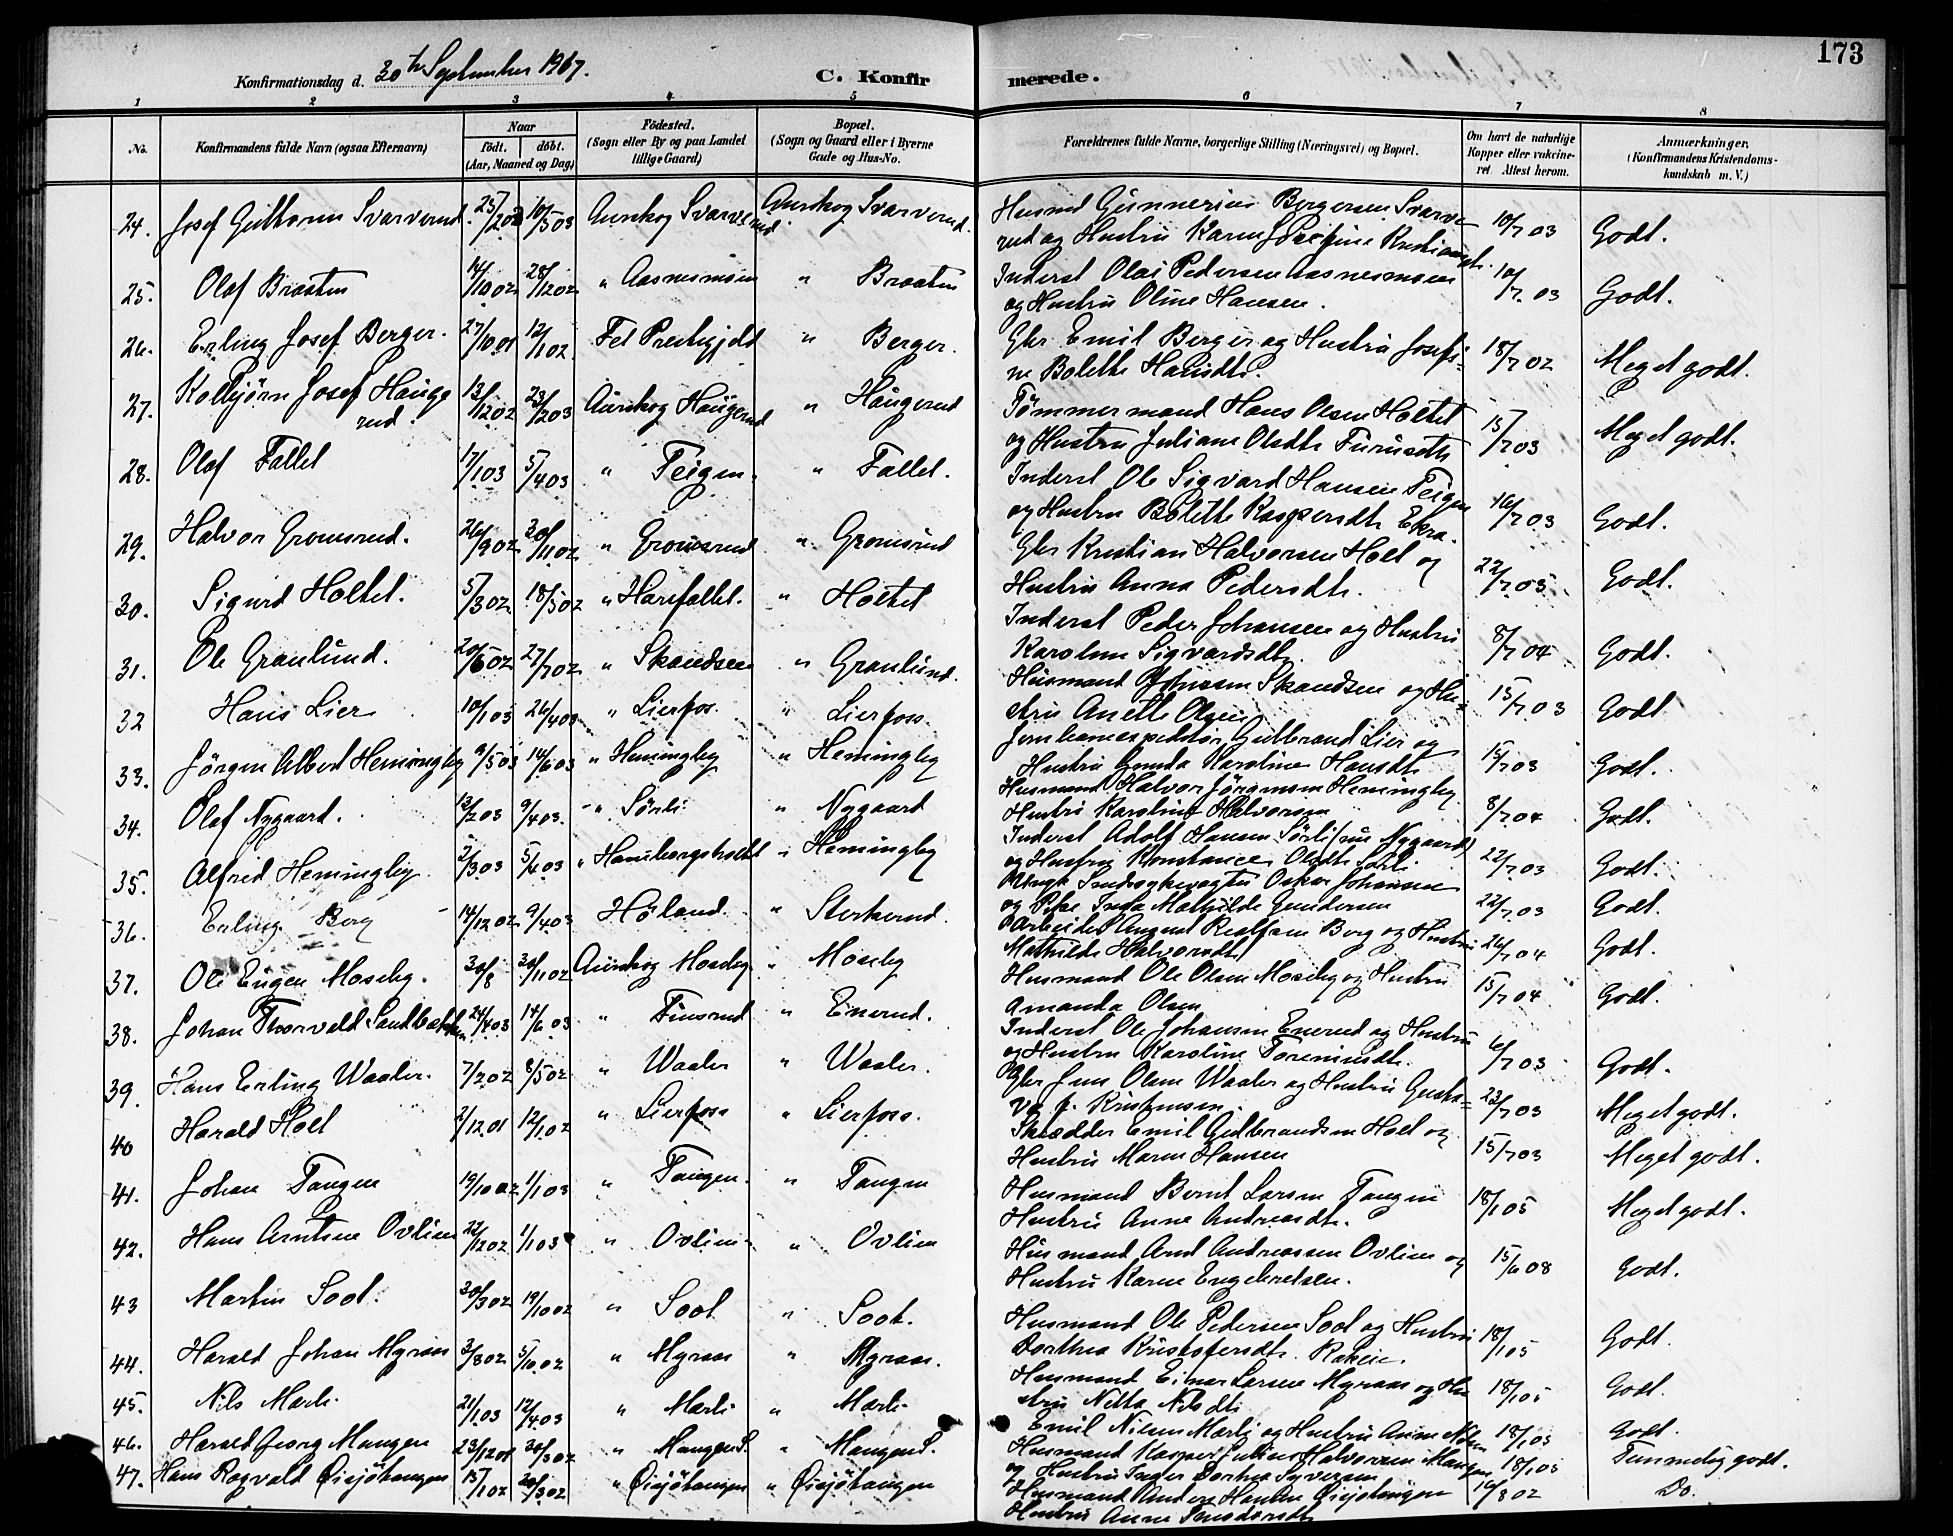 173
Konfirmationsdag d. 30te September 1917.
C. Konfir
merede.
1 2 3 4 5 6 7 8
No.
Konfirmandens fulde Navn (ogsaa Efternavn)
Naar
født. døbt.
(Aar, Maaned og Dag)
Fødested.
(Sogn eller By og paa Landet
tillige Gaard)
Bopæl.
(Sogn og Gaard eller i Byerne
Gade og Hus-No.
Forældrenes fulde Navne, borgerlige Stilling (Næringsvei) og Bopæl.
Om havt de naturlige
Kopper eller vakcine-
ret. Attest herom.
Anmærkninger.
(Konfirmandens Kristendoms-
kundskab m. V.)
24. Josef Guthorm Svarverud. Aurskog Svarverud. Aurskog Svarverud. Husmd Gunnerius Bergersen Svarve
rud og Hustru Karen Josefine 10/7 03 Godt.
25. Olaf Braaten 14/10 02 28/12 02 " Aasnesmoen " Braaten Inderst Olai Pedersen Aasnesmoen
og Hustru Oline Hansen. 10/7 03 Godt.
26. Erling Josef Berger. 27/10 01 12/1 02 Fet Prestegjeld " Berger. Gbr Emil Berger og Hustru Josefi-
ne Bolette Hansdt. 18/7 02 Meget godt.
27. Kolbjørn Josef Hauge
rud. 13/12 02 23/2 03 Aurskog Haugerud " Haugerud Tømmermand Hans Olsen Holtet
og Hustru Juliane Olsdt. Furuseth 15/7 03 Meget godt.
28. Olaf Fallet 17/1 03 5/4 03 " Teigen. " Fallet. Inderst Ole Sigvard Hansen Teigen
og Hustru Bolette Kaspersdt. Ekra. 16/7 03 Godt.
29. Halvor Gromsrud. 26/9 02 30/11 02 " Gromsrud " Gromsrud Gbr Kristian Halvorsen Holt og
Hustru Anna Pedersdt. 22/7 05 Godt.
30. Sigurd Holtet. 5/3 02 18/5 02 " Harefallet. " Holtet Inderst Peder Johansen og Hustru
Karoline Sigvardsdt. 8/7 04 Godt.
31. Ole Granlund. 20/6 02 27/7 02 " Skandsen " Granlund. Husmand Johansen Skandsen og Hu-
stru Anette Olsen 15/7 03 Godt
32 Hans Lier 10/1 03 26/4 03 " Lierfos. " Lierfoss. Jernbaneexpeditør Gulbrand Lier og
Hustru Karoline Hansdt. 15/7 03 Godt.
33. Jörgen Albert Hemingby 9/5 03 14/6 03 " Hemingby " Hemingby Husmand Halvor Jörgensen Hemingby
Hustru Karoline Halvorsen 8/7 04 Godt.
34. Olaf Nygaard. 13/2 03 9/4 03. " Sörli " Nygaard Inderst Adolf Hansen Sörli (nu Nygaard)
og Hustru Konstance Olsdt. Sörli 22/7 03 Godt.
35. Alfred Hemingby 2/3 03 5/4 03 " " Hemingby Oskar Johansen
og Pike Inga Mathilde Gundersen 22/7 03 Godt.
36. Erling Berg 14/12 02 9/4 03 Høland. " Sterkerud. Arbeider August Realfsen Berg og Hustru
Mathilde Halvorsdt. 26/7 04 Godt.
37. Ole Eugen Moseby. 30/8 30/11 02 Aurskog Moseby " Moseby Husmand Ole Olsen Moseby og Hustru
Amanda Olsen 15/7 04 Godt.
38. Johan Thorvald Sandbækken 24/4 03 14/6 03 " Finsrud " Enerud. Inderst Ole Johansen Enerud og Hustru
og Hustru Karoline 6/7 03 Godt.
39. Hans Erling Waaler. 7/2 02 8/5 02 " Waaler " Waaler. Gbr Jens Olsen Waaler og Hustru Gusta-
va f. Kristensen. 23/7 03 Meget godt.
40 Harald Holt 2/12 01 12/1 02 " Lierfoss " Lierfoss. Skrædder Emil Gulbrandsen Holt og
Hustru Maren Hansen 15/7 03 Meget godt.
41. Johan Tangen 19/10 02 1/1 03 " Tangen. " Tangen Husmand Bernt Larsen Tangen
Hustru Anne Andreasdt. 18/1 05 Meget godt.
42. Hans Arntsen Ovlien 22/12 02 1/1 03 " Ovlien " Ovlien Husmand Arnt Andreassen Ovlien og
Hustru Karen Engebretsen. 15/6 08 Godt.
43 Martin Soot. 30/3 02 19/10 02 " Soot " Soot. Husmand Ole Pedersen Soot og Hustru
Dorthea Kristofersdt. 18/1 05 Godt.
44. Harald Johan Myraas 3/8 02 5/10 02 " Myraas " Myraas. Husmand Einar Larsen Myraas og Hu
stru Netta Nilsdt. 18/1 05 Godt.
45. Nils Mærli. 21/1 03 12/4 03 " Mærli " Mærli Emil Nilsen Mærli og Hustru Anne 18/1 05 Godt.
46. Harald Georg Mangen 23/12 01 30/3 02 " Mangen S. " Mangen S. Husmand Kasper Julius Halvorsen Mangen
og Hustru Inger Dorthea Syversen 18/1 05 Temmelig godt.
47. Hans Ragvald Øisjøtangen 15/1 02 30/3 02 " Øisjøtangen " Øisjøtangen Husmand Anders Hansen Øisjøtangen
Hustru Anne 16/8 02 Do.